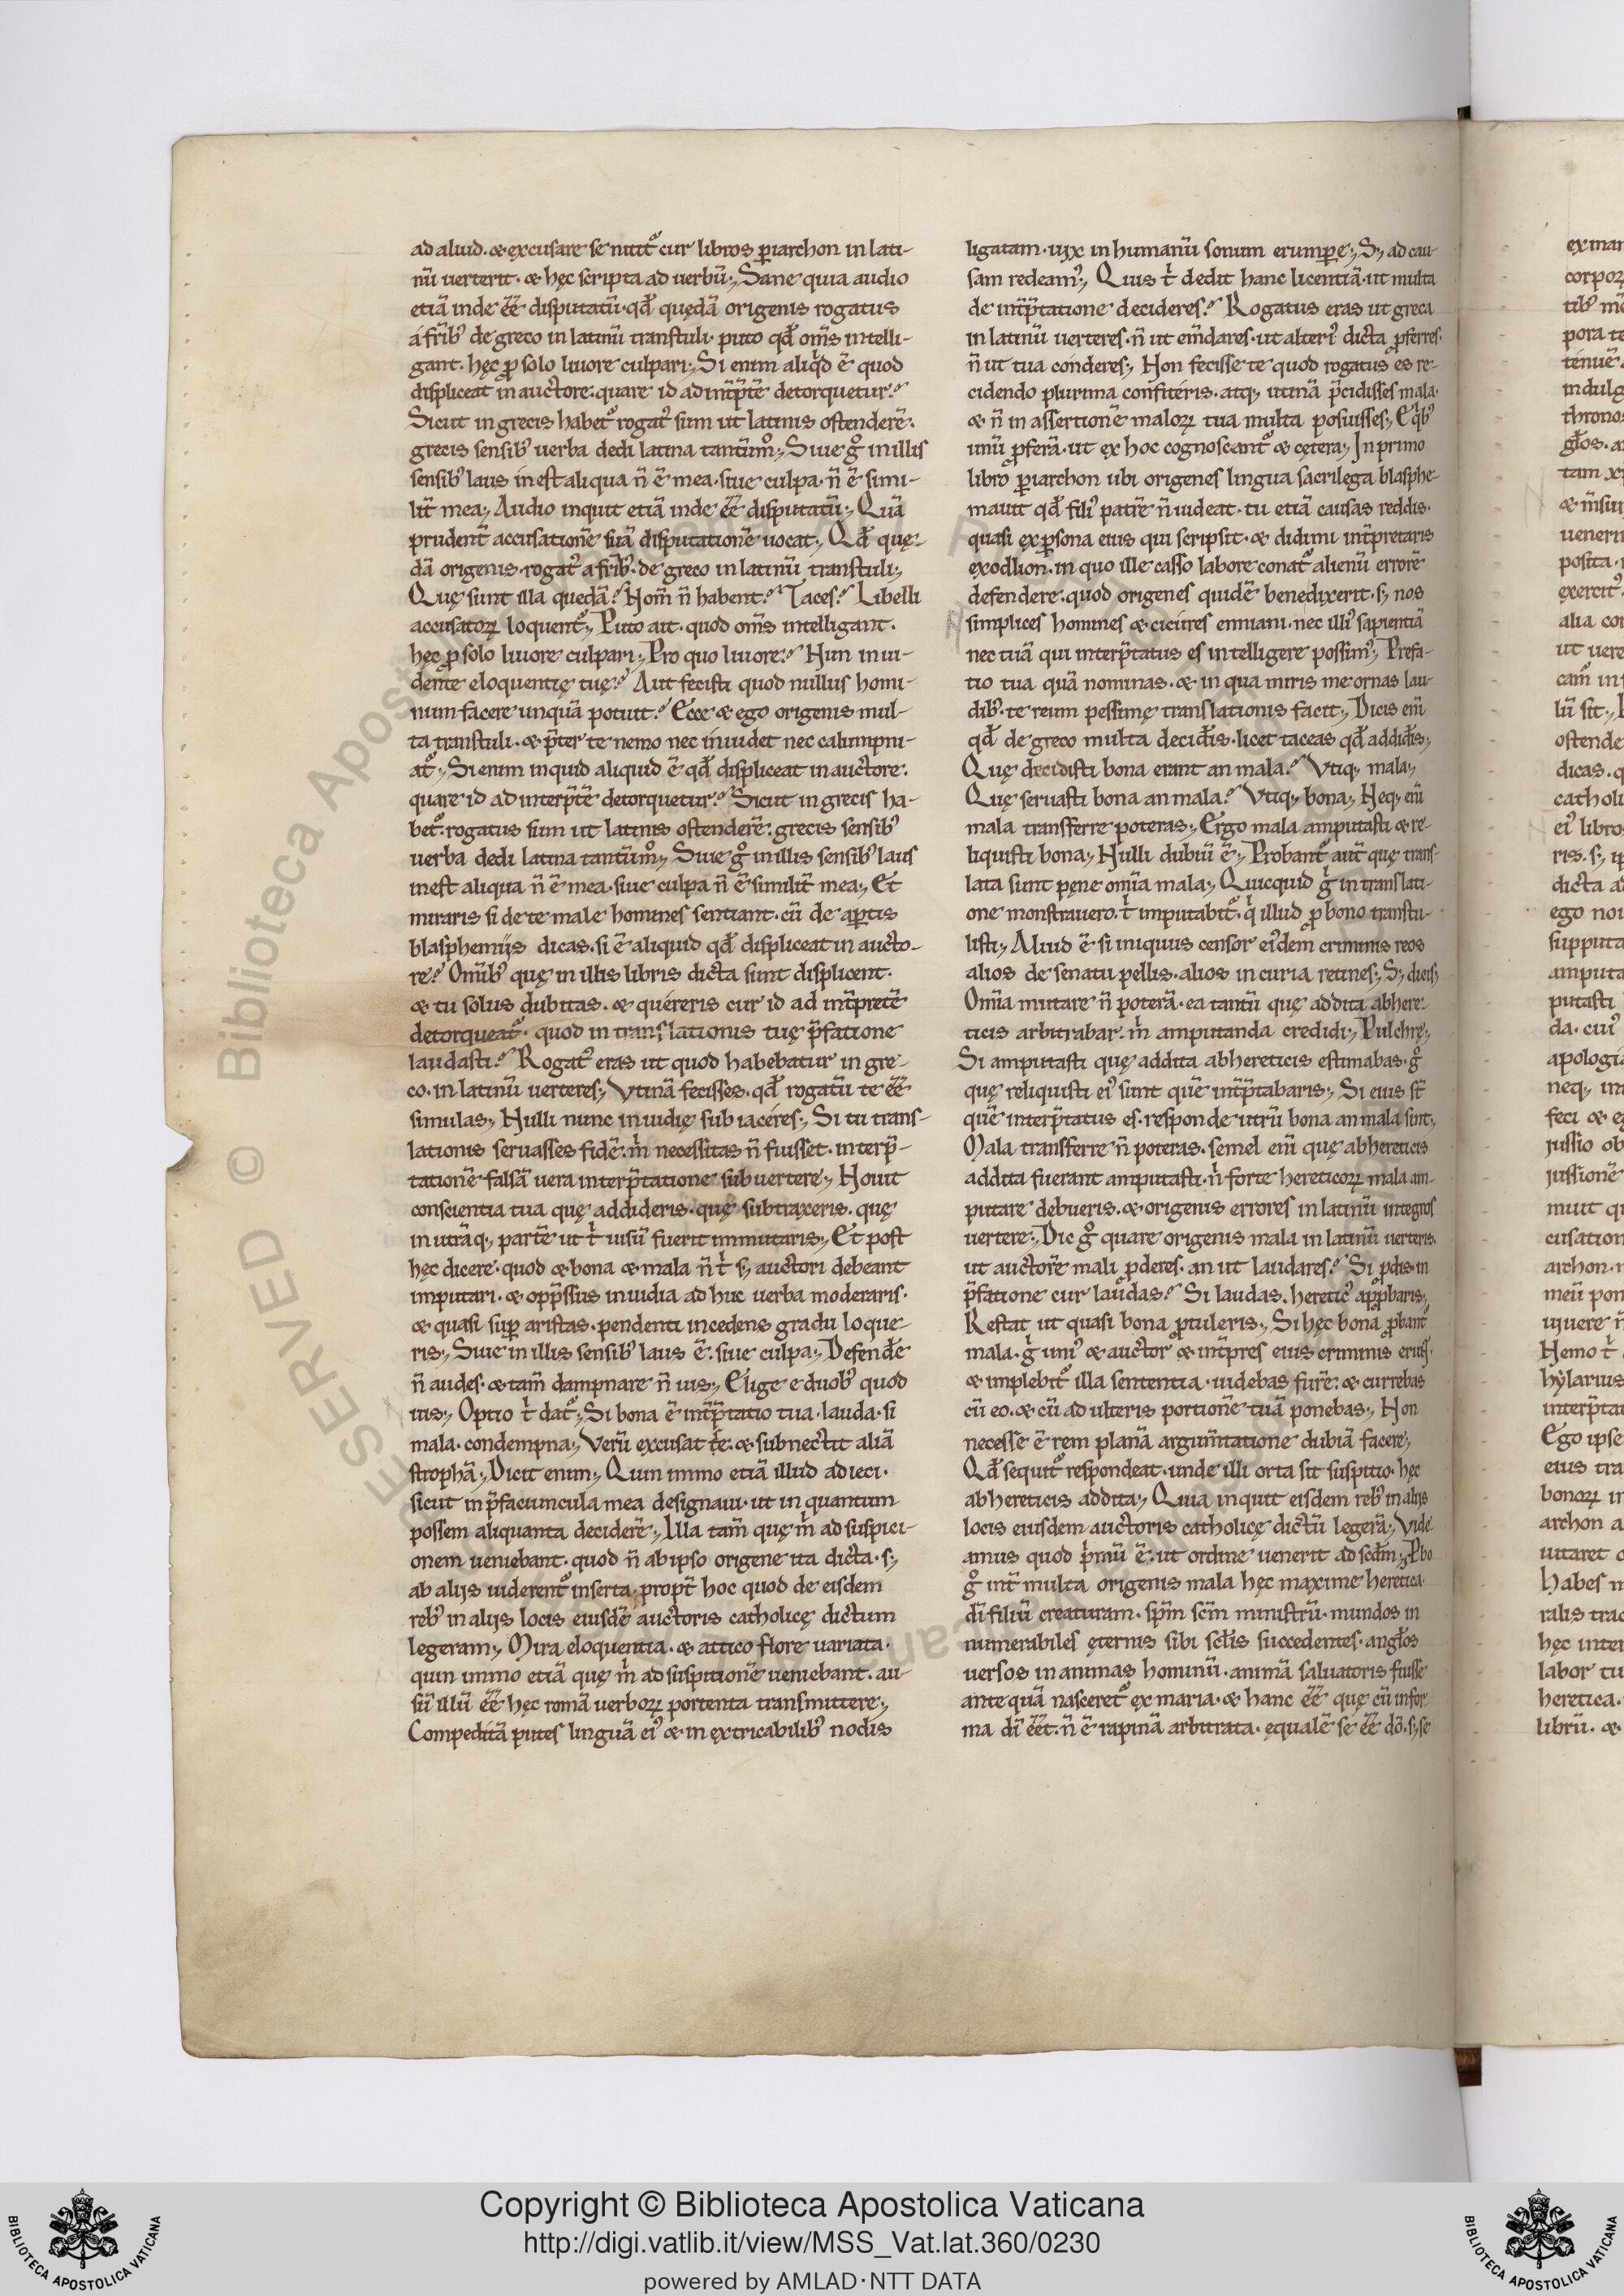 ad aliud. & excusare se nitit᷑ cur libros ꝑiarchon in lati-
nū uerterit. & hęc scripta ad uerbū; Sane quia audio
etiā inde ēē disputatū. qđ quędā origenis rogatus
á frib᷒ de greco in latinū transtuli. puto qđ om̄s intelli-
gant. hęc ꝓ solo liuore culpari; Si enim aliqd ē quod
displiceat in auctore. quare id ad int̄p̄tē detorquetur?
Sicut in grecis habet᷑ rogat᷒ sum ut latinis ostenderē.
grecis sensib᷒ uerba dedi latina tantūm̊; Siue gͦ in illis
sensib᷒ laus inest aliqua n̄ ē mea. siue culpa. n̄ ē simi-
lit̄ mea; Audio inquit etiā inde ēē disputatū; Quā
prudent̄ accusationē suā disputationē uocat; Qđ quę-
dā origenis. rogat᷒ a frib᷒. de greco in latinū transtuli;
Quę sunt illa quedā? Nom̄ n̄ habent? Taces? Libelli
accusatoꝝ loquent᷑; Puto ait. quod om̄s intelligant.
hęc ꝓ solo liuore culpari; Pro quo liuore? Nun inui-
dente eloquentię tuę? Aut fecisti quod nullus homi-
num facere unquā potuit? Ecce & ego origenis mul-
ta transtuli. & p̄ter te nemo nec inuidet nec calumpni-
at᷑; Si enim inquid aliquid ē qđ displiceat in auctore.
quare id ad interp̄tē detorquetur? Sicut in grecis ha-
bet᷑. rogatus sum ut latinis ostenderē. grecis sensib᷒
uerba dedi latina tantūm̊; Siue gͦ in illis sensib᷒ laus
inest aliqua n̄ ē mea. siue culpa n̄ ē similit̄ mea; Et
miraris si de te male homines sentiant. cū de aꝑtis
blasphemijs dicas. si ē aliquid qđ displiceat in aucto-
re? Omīb᷒ quę in illis libris dicta sunt displicent.
& tu solus dubitas. & quéreris cur id ad int̄pretē
detorqueat᷑. quod in translationis tuę p̄fatione
laudasti? Rogat᷒ eras ut quod habebatur in gre-
co. in latinū uerteres; Vtinā fecisses. qđ rogatū te ēē
simulas; Nulli nunc inuidię subiacéres; Si tu trans-
lationis seruasses fidē. m̍ necessitas n̄ fuisset. interp̄-
tationē falsā uera interp̄tatione subuertere; Nouit
conscientia tua quę addideris. quę subtraxeris. quę
in utrāq; partē ut t̍ uisū fuerit immutaris; Et post
hęc dicere. quod & bona & mala n̄ t̍ s; auctori debeant
imputari. & opp̄ssus inuidia ad huc uerba moderaris.
& quasi suꝑ aristas. pendenti incedens gradu loque-
ris; Siue in illis sensib᷒ laus ē. siue culpa; Defendere
n̄ audes. & tam̄ dampnare n̄ uis; Elige e duob᷒ quod
uis; Optio t̍ dat᷑; Si bona ē int̄p̄tatio tua. lauda. si
mala. condempna; Verū excusat se. & subnectit aliā
strophā; Dicit enim; Quin immo etiā illud adieci.
sicut in p̄faciuncula mea designaui. ut in quantum
possem aliquanta deciderē; Illa tam̄ quę m̍ ad suspici-
onem ueniebant. quod n̄ ab ipso origene ita dicta. s;
ab alijs uiderent᷑ inserta. propt̄ hoc quod de eisdem
reb᷒ in alijs locis eiusdē auctoris catholicę dictum
legeram; Mira eloquentia. & attico flore uariata.
quin immo etiā quę m̍ ad suspitionē ueniebant. au-
sū illū ēē hęc romā uerboꝝ portenta transmittere;
Compeditā putes linguā ei᷒ & inextricabilib᷒ nodis
ligatam. uix in humanū sonum erumꝑe; S; ad cau-
sam redeam᷒; Quis t̍ dedit hanc licentiā. ut multa
de int̄p̄tatione decideres? Rogatus eras ut greca
in latinū uerteres. n̄ ut em̄dares. ut alteri᷒ dicta ꝓferres.
n̄ ut tua cónderes; Non fecisse te quod rogatus es re-
cidendo plurima confitéris. atq; utinā p̄cidisses mala.
& n̄ in assertionē maloꝝ tua multa posuisses; E qb᷒
unū ꝓferā. ut ex hoc cognoscant᷑ & cętera; In primo
libro ꝑiarchon ubi origenes lingua sacrilega blasphe-
mauit qđ fili᷒ patrē n̄ uideat. tu etiā causas reddis.
quasi ex ꝑsona eius qui scripsit. & didimi int̄pretaris
exodlion. in quo ille casso labore conat᷑ alienū errorē
defendere. quod origenes quidē benedixerit. s; nos
simplices homines & cicúres enniani. nec illi᷒ sapientiā
nec tuā qui interp̄tatus es intelligere possim᷒; Prefa-
tio tua quā nominas. & in qua miris me ornas lau-
dib᷒. te reum pessimę translationis facit; Dicis eni̅
qđ de greco multa decideris. licet taceas qđ addideris;
Quę decidisti bona erant an mala? Vtiq; mala;
Quę seruasti bona an mala? Vtiq; bona; Neq; eni̅
mala transferre poteras; Ergo mala amputasti & re-
liquisti bona; Nulli dubiū ē; Probant᷑ aut̄ quę trans-
lata sunt pęne omīa mala; Quicquid g̍ in translati-
one monstrauero. t̍ imputabit᷑. q̍ illud ꝓ bono transtu-
listi; Aliud ē si iniquus censor ei᷒dem criminis reos
alios de senatu pellis. alios in curia retines; S; dicis;
Omīa mutare n̄ poterā. ea tantū quę addita ab here-
ticis arbitrabar. m̍ amputanda credidi; Pulchrę;
Si amputasti quę addita ab hereticis estimabas. gͦ
quę reliquisti ei᷒ sunt quē int̄p̄tabaris; Si eius st̄
quē interp̄tatus es. responde utrū bona an mala sint;
Mala transferre n̄ poteras. semel eni̅ quę ab hereticis
addita fuerant amputasti. n̍ forte hereticoꝝ mala am-
putare debueris. & origenis errores in latinū integros
uertere; Dic gͦ quare origenis mala in latinū uerteris.
ut auctorē mali ꝓderes. an ut laudares? Si ꝓdis in
p̄fatione cur laudas? Si laudas. heretic᷒ apꝓbaris;
Restat ut quasi bona ꝓtuleris; Si hęc bona ꝓbant᷑
mala. g̍ uni᷒ & auctor & int̄pres eius criminis erit᷒.
& implebit᷑ illa sententia. uidebas furē. & currebas
cū eo. & cū adulteris portionē tuā ponebas; Non
necesse ē rem planā argum̄tatione dubiā facere;
Qđ sequit᷑ respondeat. unde illi orta sit suspitio. hęc
ab hereticis addita; Quia inquit eisdem reb᷒ in alijs
locis eiusdem auctoris catholicę dictū legerā; Vide
amus quod p̍mū ē. ut ordine uenerit ad scd̄m; Pbo
gͦ int̄ multa origenis mala hęc maxime heretica.
di̅ filiū creaturam. sp̄m sc̄m ministrū. mundos in
numerabiles ęternis sibi sclis succedentes. anglos
uersos in animas hominū. animā saluatoris fuisse
antequā nasceret᷑ ex maria. & hanc ēē quę cū in for
ma di̅ ēēt. n̄ ē rapinā arbitrata. ęqualē se ēē dō. s; se
Copyright © Biblioteca Apostolica Vaticana
http://digi.vatlib.it/view/MSS_Vat.lat.360/0230
powered by AMLAD·NTT DATA